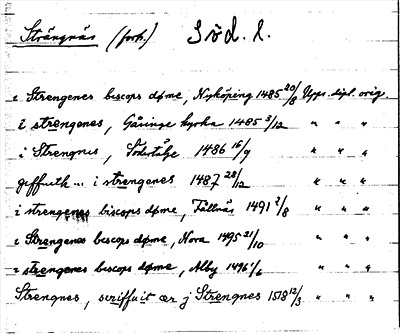 Strängnäs (forts.) Söd. l.
i Strengenes biscops døme, Nyköping 1485 20/8 Upps. dipl. orig.
i strengenes, Gåsinge kyrka 1485 3/12 " " "
i Strengnus, Södertälje 1486 16/9 " " "
giffuith ... i strengenes 1487 28/12 " " "
i strengenes biscops døme, Fållnäs 1491 2/8 " " "
i Strengenes biscops døme, Nora 1495 21/10 " " "
i strengenes biscops døme, Alby 1496 1/6 " " "
Strengnes, scriffuit ær j Strengnes 1518 12/3 " "